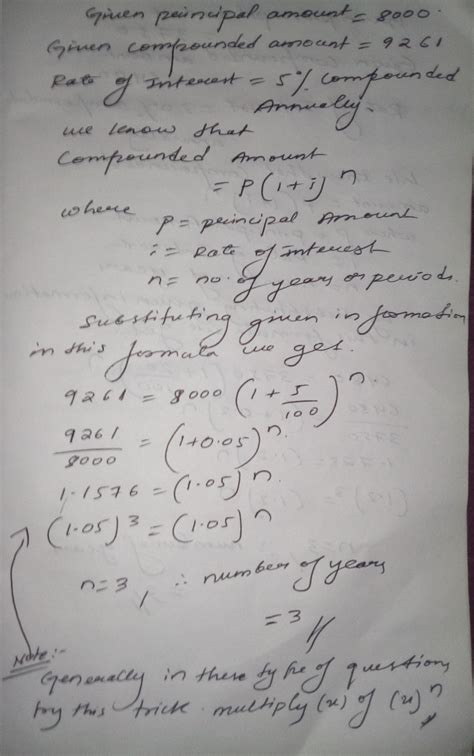 Given principal amount = 8000.
Given compounded amount = 9261
Rate of Interest = 5% compounded
Annually.
we know that
Compounded Amount
= P(1+i)^n
where
P = principal Amount
i = Rate of interest
n = no. of years or periods.
Substituting given information
in this formula we get.
9261 = 8000 (1 + 5/100)^n
9261/8000 = (1+0.05)^n
1.1576 = (1.05)^n
(1.05)^3 = (1.05)^n
n=3, ∴ number of years
= 3 //
Note:-
Generally in these type of questions
try this trick multiply (x) of (x)^n